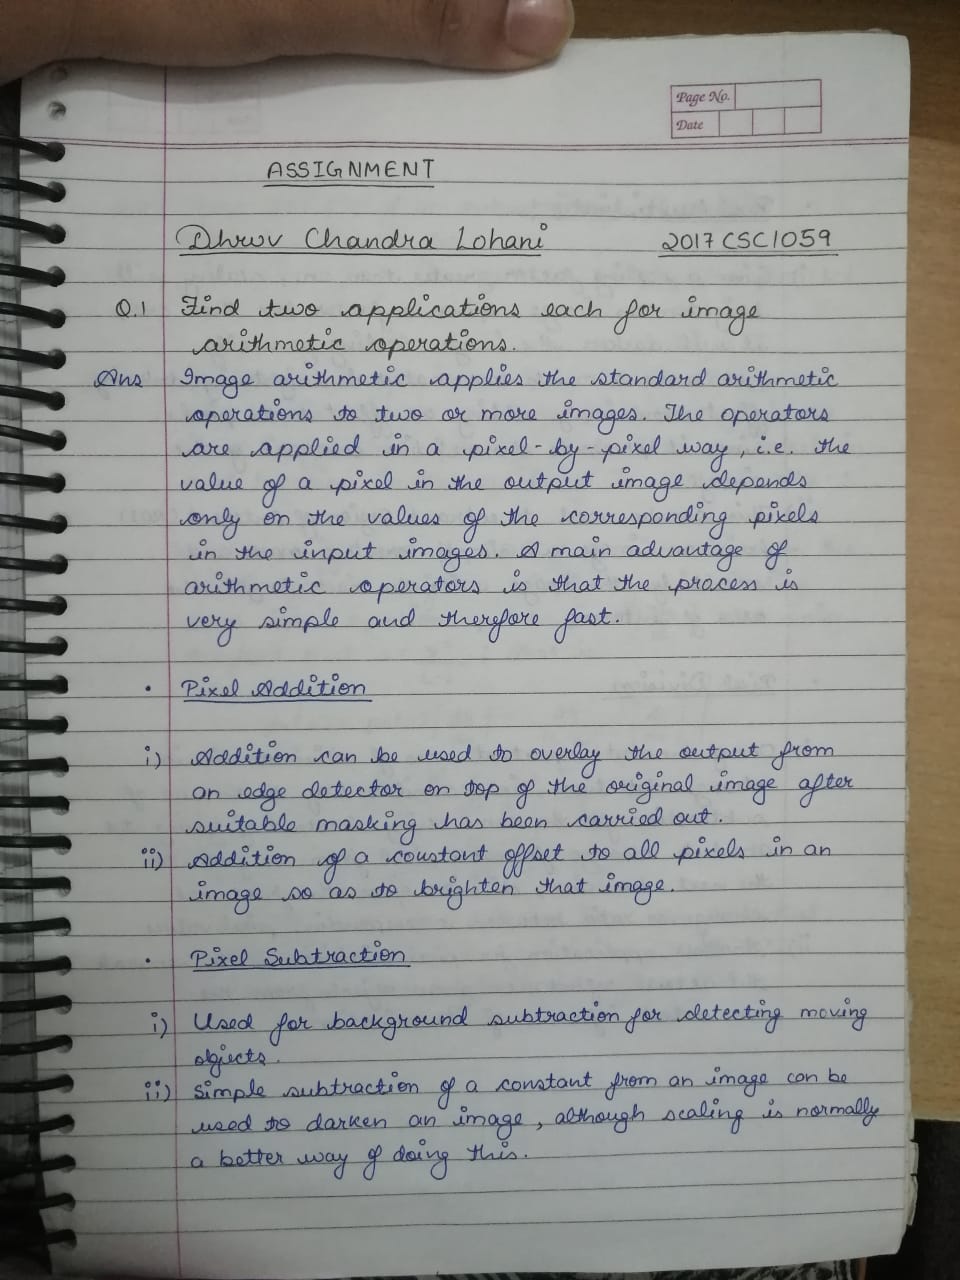 Page No.
Date
ASSIGNMENT
Dhruv Chandra Lohani 2017CSC1059
Q.1 Find two applications each for image
arithmetic operations.
Ans Image arithmetic applies the standard arithmetic
operations to two or more images. The operators
are applied in a pixel-by-pixel way, i.e. the
value of a pixel in the output image depends
only on the values of the corresponding pixels
in the input images. A main advantage of
arithmetic operators is that the process is
very simple and therefore fast.
• Pixel Addition
i) Addition can be used to overlay the output from
an edge detector on top of the original image after
suitable masking has been carried out.
ii) Addition of a constant offset to all pixels in an
image so as to brighten that image.
• Pixel Subtraction
i) Used for background subtraction for detecting moving
objects.
ii) Simple subtraction of a constant from an image can be
used to darken an image, although scaling is normally
a better way of doing this.